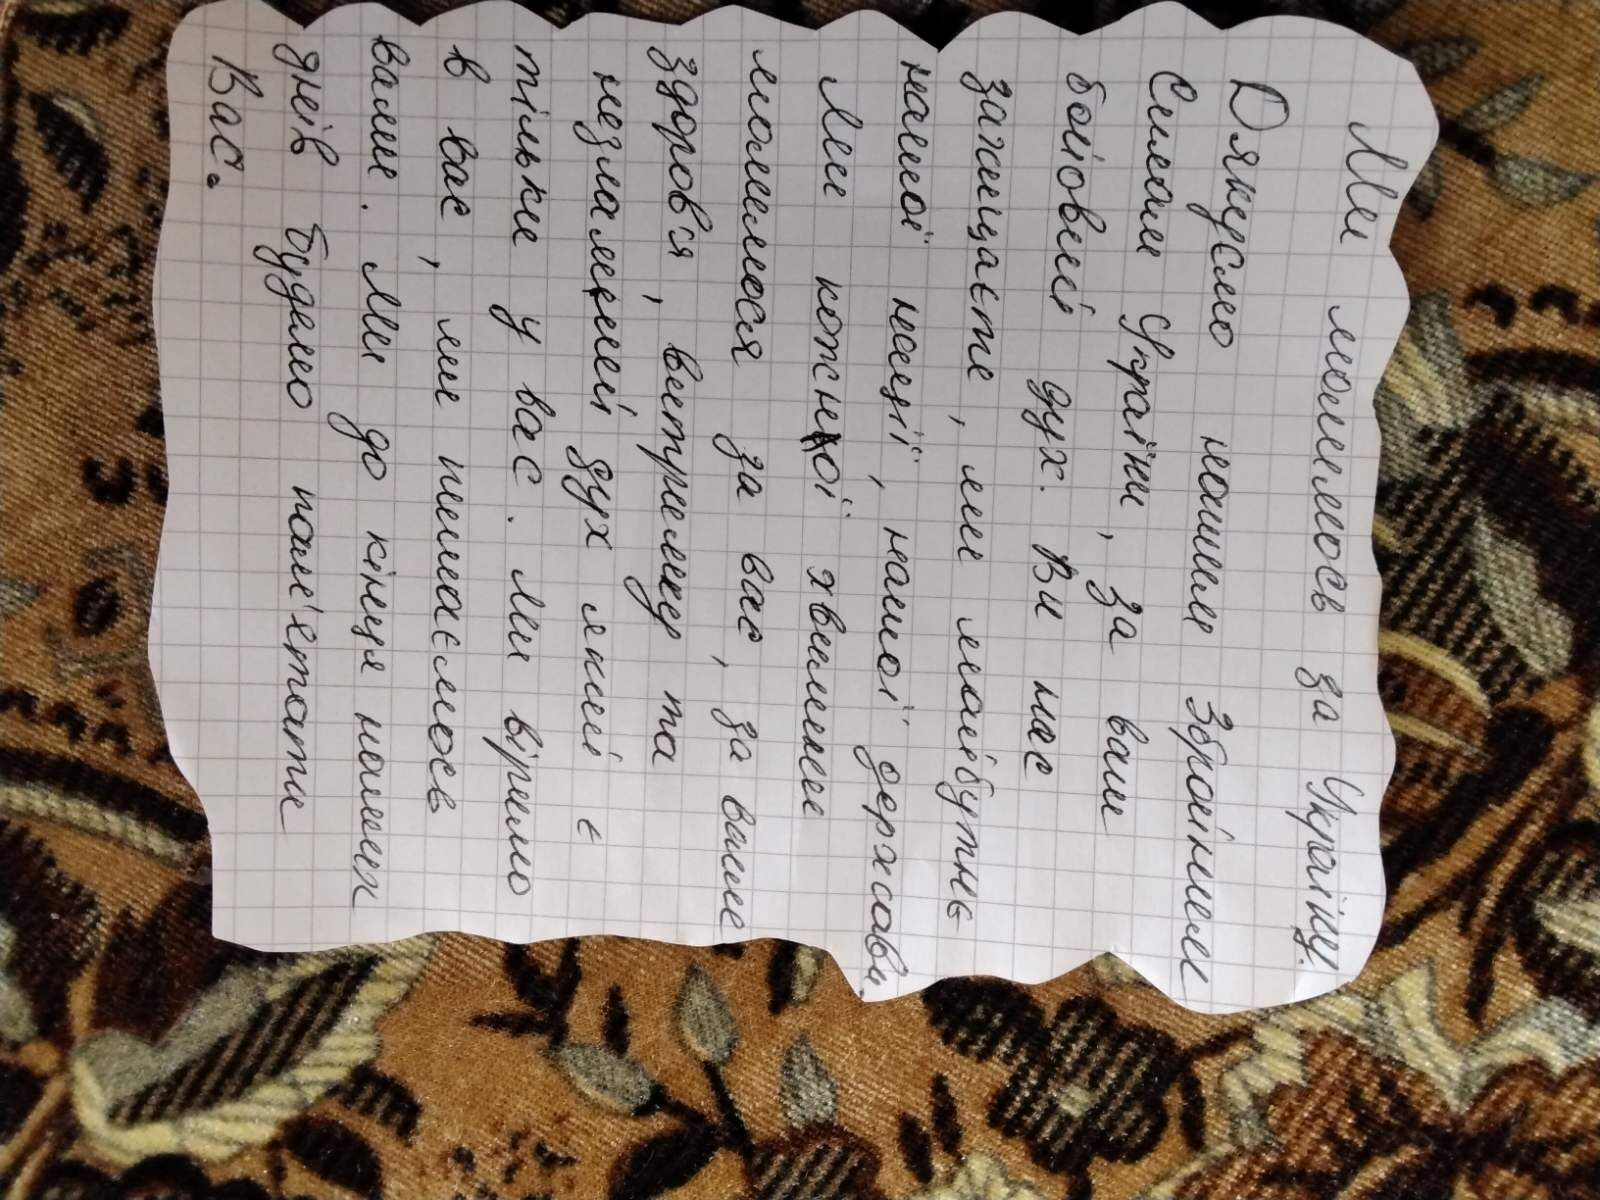 Ми молимось за Україну!
Дякуємо нашим Збройним
Силам України, за ваш
бойовий дух. Ви нас
захищаєте, ми майбутнє
нашої нації, нашої держави.
Ми кожної хвилини
молимлося за вас, за ваше
здоров'я, витримку та
незламний дух який є
тільки у вас. Ми віримо
в вас, ми пишаємось
вами. Ми до кінця наших
днів будемо пам'ятати
Вас.